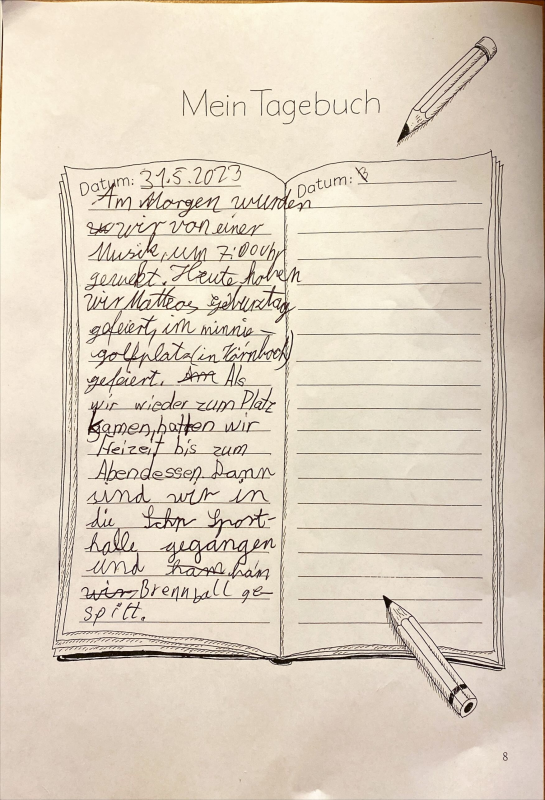 Mein Tagebuch
Datum: 31.5.2023
Am Morgen wurden
wir von einer
Musik, um 7:00 Uhr
geweckt. Heute haben
wir Matteos geburztag
gefeiert, im minnie-
golfplatz (in Zörnbock)
gefeiert. Am Als
wir wieder zum Platz
kamen, hatten wir
Freizeit bis zum
Abendessen. Dann
sind wir in
die Schp Sport-
halle gegangen
und ham han
wir Brennball ge-
spillt.
Datum:
8